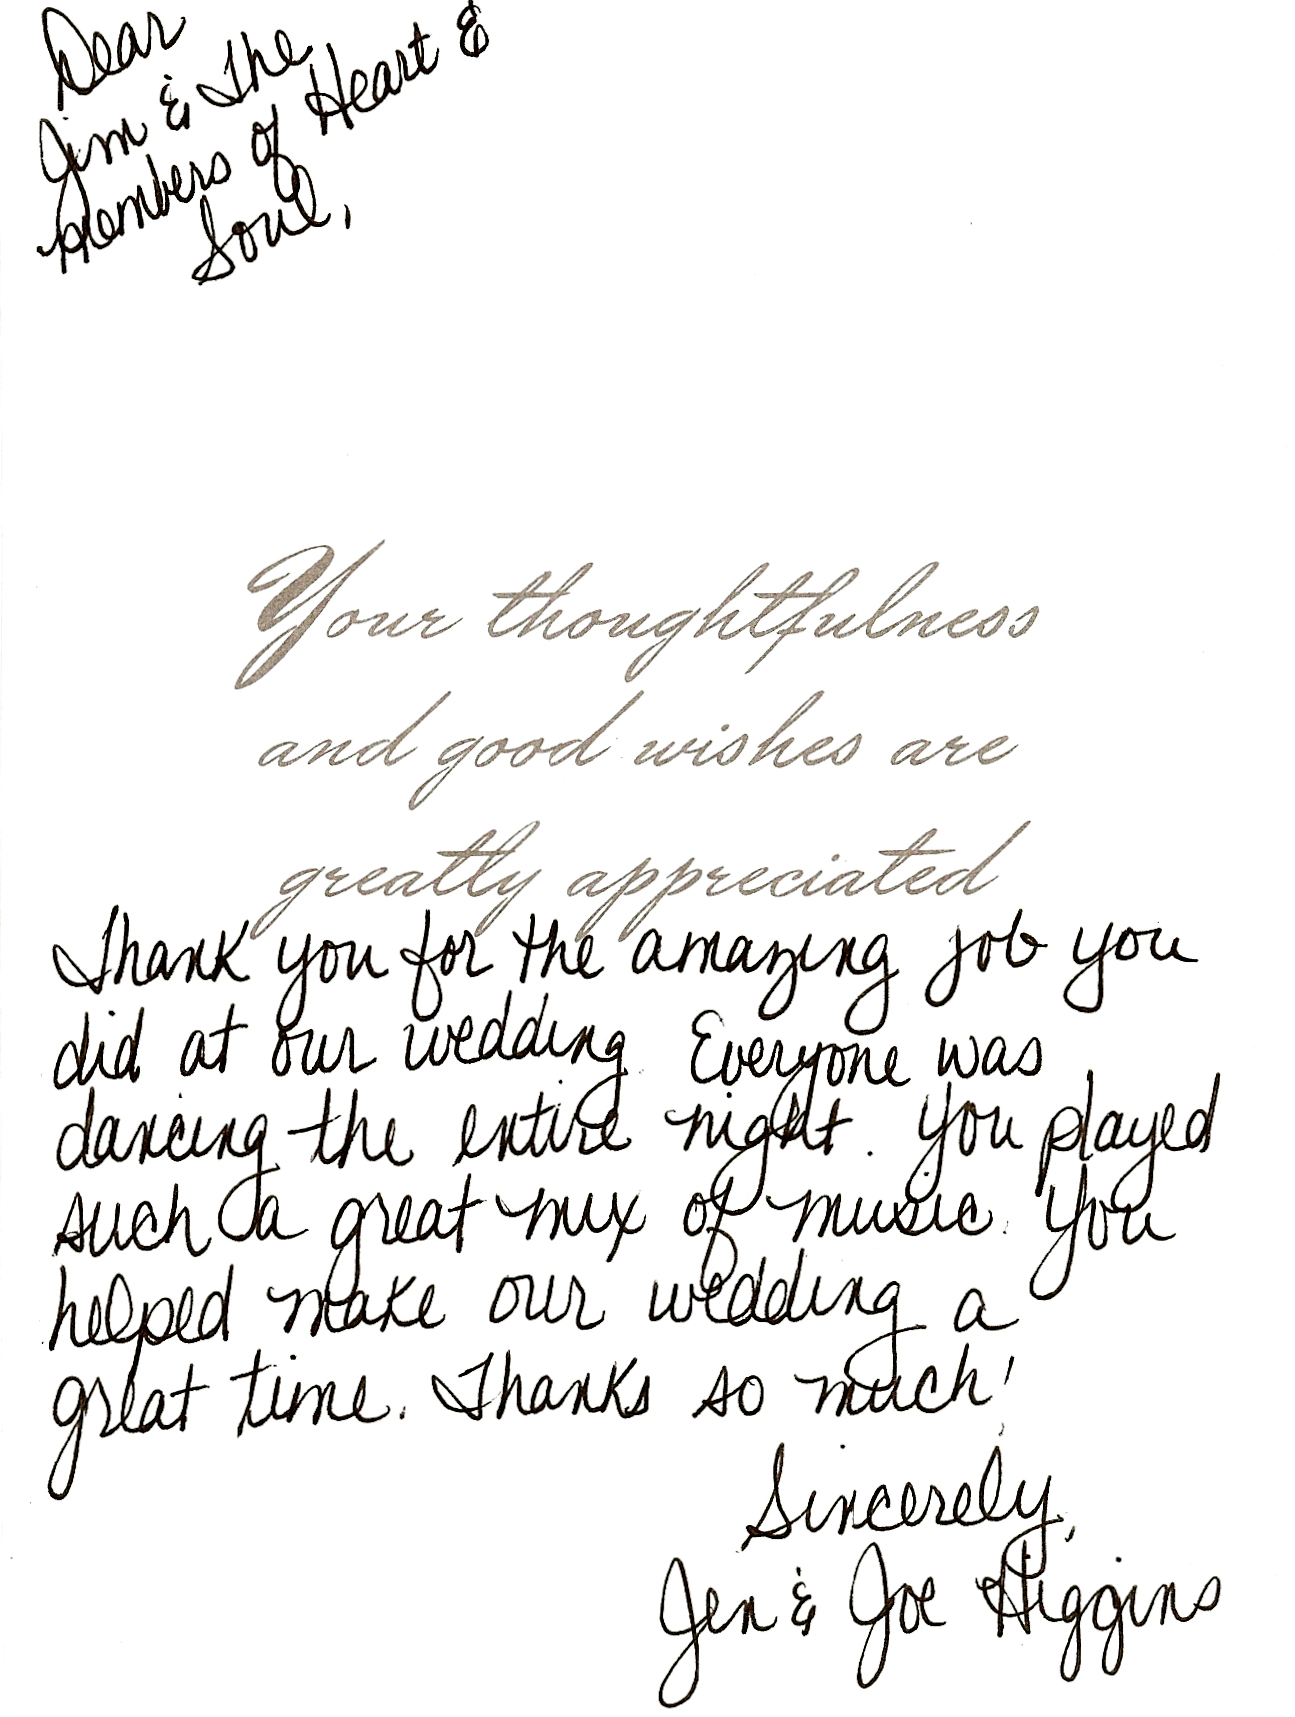 Dear
Jim & The
members of Heart &
Soul,
Your thoughtfulness
and good wishes are
greatly appreciated
Thank you for the amazing job you
did at our wedding. Everyone was
dancing the entire night. You played
such a great mix of music. You
helped make our wedding a
great time. Thanks so much!
Sincerely,
Jen & Joe Higgins